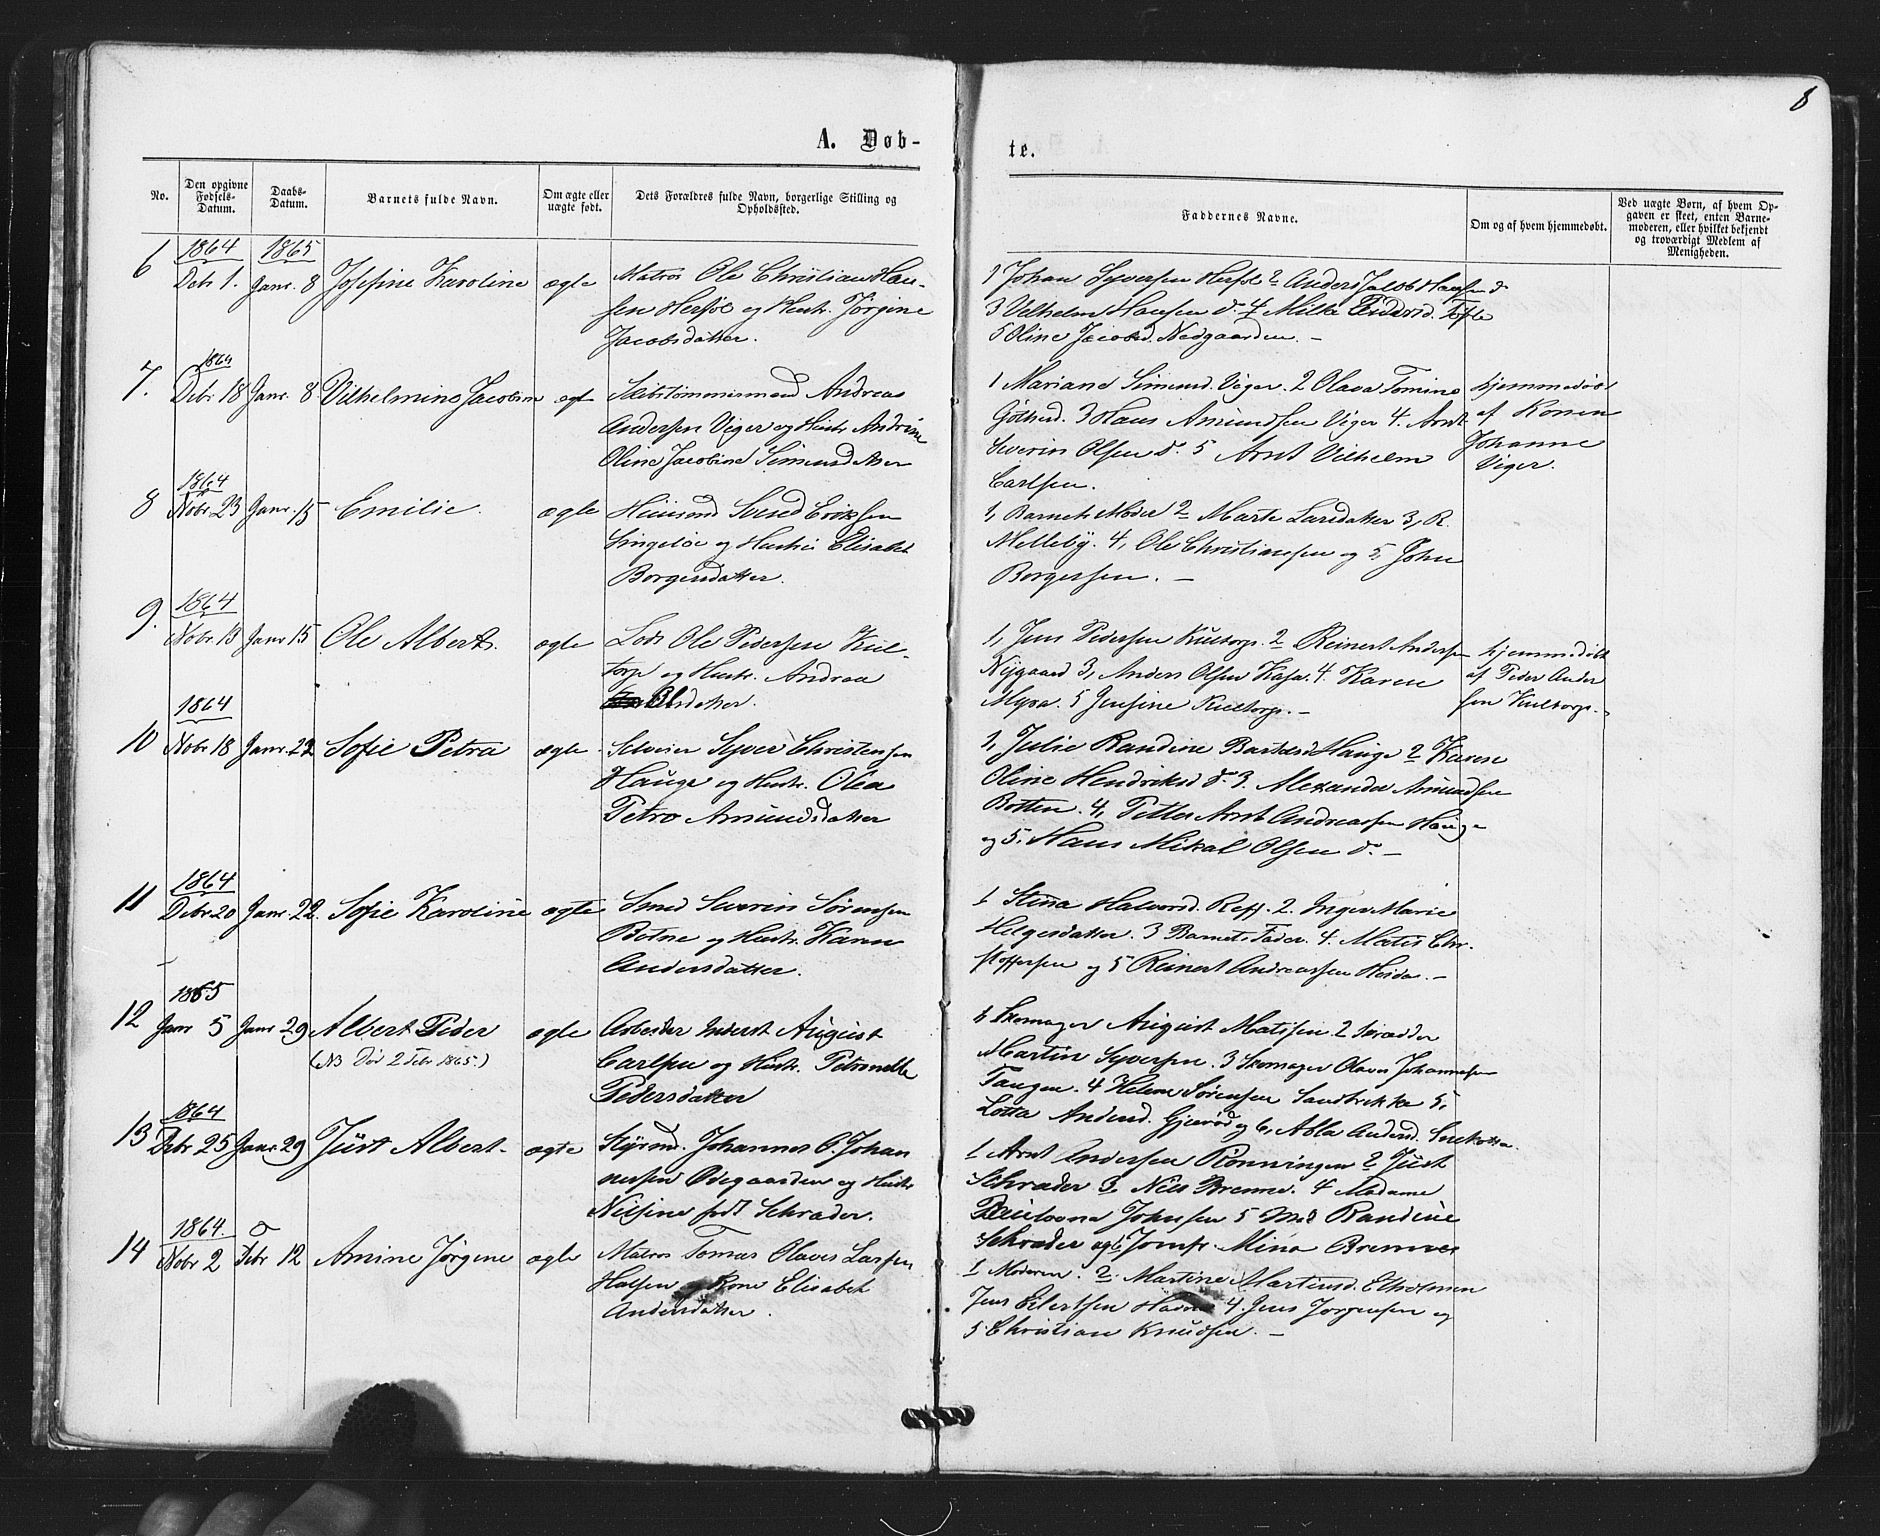 8
A. Døb-
te.
No.
Den opgivne Fødsels-Datum.
Daabs-Datum.
Barnets fulde Navn.
Om ægte eller uægte født.
Dets Forældres fulde Navn, borgerlige Stilling og Opholdssted.
Faddernes Navne.
Om og af hvem hjemmedøbt.
Ved uægte Børn, af hvem Opgaven er skeet, enten Barnemoderen, eller hvilket bekjendt og troværdigt Medlem af Menigheden.
1864 1865
6 Debr 1. Janr. 8 Josefine Karoline ægte Matros Ole Christian Han-
sen Herføl og Hustr. Jørgine
Jacobsdatter.
1 Johan Syversen Herføl 2 Anders Jacob Hansen d
3 Vilhelm Hansen d. 4 Milla
5 Oline Jacobsd. Nedgaarden. –
1864
7. Debr 18 Janr. 8 Vilhelmine Jacobine ægt Skibstømmermand Andreas
Andersen Viger og Hustr Andrine
Oline Jacobine Simensdatter
1 Mariane Simensd. Viger. 2 Olava Tomine
3 Hans Amundsen Viger 4. Arnt
Severin Olsen d. 5 Arnt Vilhelm
Carlsen.
Hjemmedøbt
af Konen
Johanne
Viger.
1864
8 Nobr. 23 Janr. 15 Emilie. ægte Huusmd Svend Eriksen
Singeløe og Hustru Elisabet
Borgersdatter.
1, Barnets Moder 2 Marte Larsdatter 3, R.
Melleby. 4, Ole Christiansen og 5 John
Borgersen. –
1864
9. Nobr. 13 Janr 15 Ole Albert. ægte Lods Ole Pedersen Kul-
torp og Hustr. Andrea
Olsdatter.
1, Jens Pedersen Kultorp. 2 Reinert Andersen
Nygaard 3, Anders Olsen Kasa. 4. Karen
Myra. 5 Jensine Kultorp. –
Hjemmedøbt
af Peder Ander
sen Kultorp. –
1864
10 Nobr 18 Janr. 22 Sofie Petra ægte Selveier Syver Christensen
Hauge og Hustr. Olea
Petra Amundsdatter
1, Julie Randine Hauge 2 Karen
Oline Hendriksd d. 3. Alexander Amundsen
Botten. 4, Petter Arnt Andreassen Hauge
og 5. Hans Mikal Olsen d. –
1864
11 Debr. 20 Janr. 22. Sofie Karoline ægte Smed Severin Sørensen
Botne og Hustr. Karen
Andersdatter.
1 Stina Halvorsd. Reff. 2. Inger Marie
Helgesdatter. 3 Barnets Fader. 4. Matis Chr-
stoffersen og 5 Reinert Andreassen Heida. –
1865
12 Janr 5 Janr 29 Albert Peder ægte Arbeider Inderst August
(NB Død 2 Febr 1865.)
Carlsen og Hustr. Petronelle
Pedersdatter
1 Skomager August Matisen. 2 Skrædder
Martin Syversen. 3 Skomager Olaves Johannesen
Tangen. 4 Helene Sørensen Sandbrekke 5,
Lotta Andersd. og 6, Abla Andersd.
1864
13 Debr 25 Janr. 29 Just Albert. ægte Styrmd. Johannes O. Johan
nesen Ødegaarden og Hustr
Nilsine født Schrader.
1 Arnt Andersen Rønningen 2 Just
Schrader 3. Nils Bremer. 4 Madame
Johnsen 5 Md Randine
Schrader og 6 Jomfr. Mina Bremer
1864.
14 Nobr 2 Febr 12 Amine Jørgene ægte Matros Tomas Olaves Larsen
Halsen og Kone Elisabet
Andersdatter.
1 Moderen. 2. Martine Martinsd.
Jens Eilertsen 4. Jens Jørgensen og
5 Christian Knudsen. –